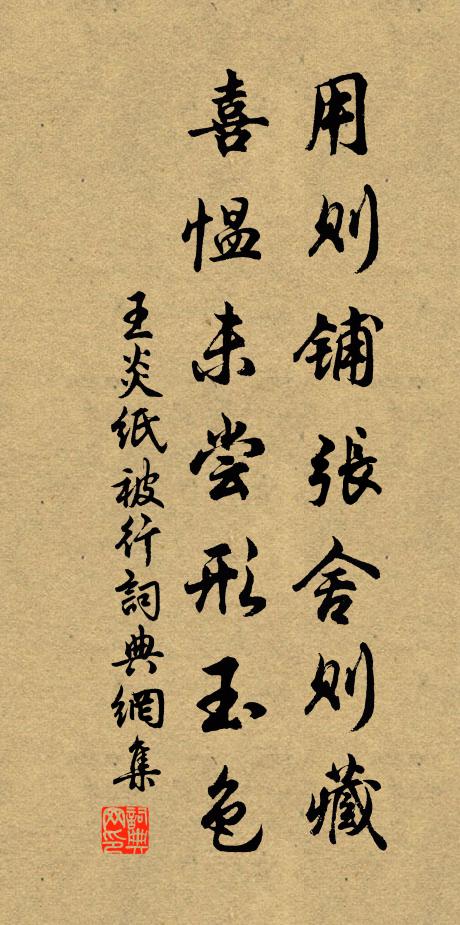 用则铺張舍则藏
喜愠未尝形玉色
王炎纸被行詞典網集
詞典網印